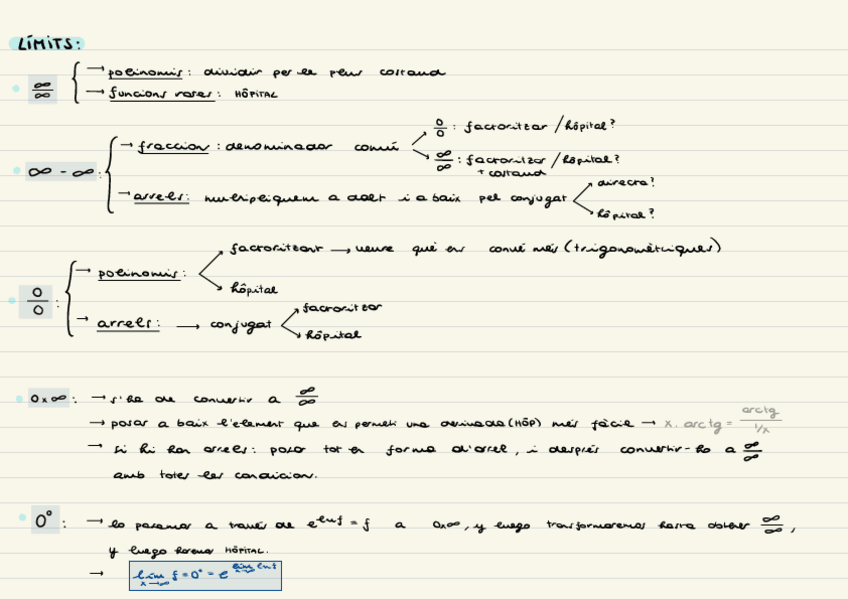 LÍMITS:
∞/∞ { → polinomis: dividir per el peus costaud
→ funcions rares: HÔPITAL
∞ - ∞: { → fraccion: denominador comú
0/0: factoritzar / hôpital?
∞/∞: factoritzar / hôpital?
+ costaud
→ arrels: multipliquem a dalt i a baix pel conjugat
directe?
hôpital?
0/0: { → polinomis:
factoritzant → veure què ens convé més (trigonomètriques)
hôpital
→ arrels: → conjugat
factoritzar
hôpital
0x∞: → s'ha de convertir a ∞/∞
→ posar a baix l'element que ens permeti una derivada (HÔP) més fàcil → x. arctg = arctg / 1/x
→ si hi han arrels: poso tot en forma d'arrel, i després convertir-ho a ∞/∞
amb totes les condicion.
0°: → lo pasamos a través de e^lnf = f a 0x∞, y luego transformaremos hasta obtener ∞/∞,
y luego haremos HÔPITAL.
→ lim x→∞ f = 0° = e^lim x→∞ lnf